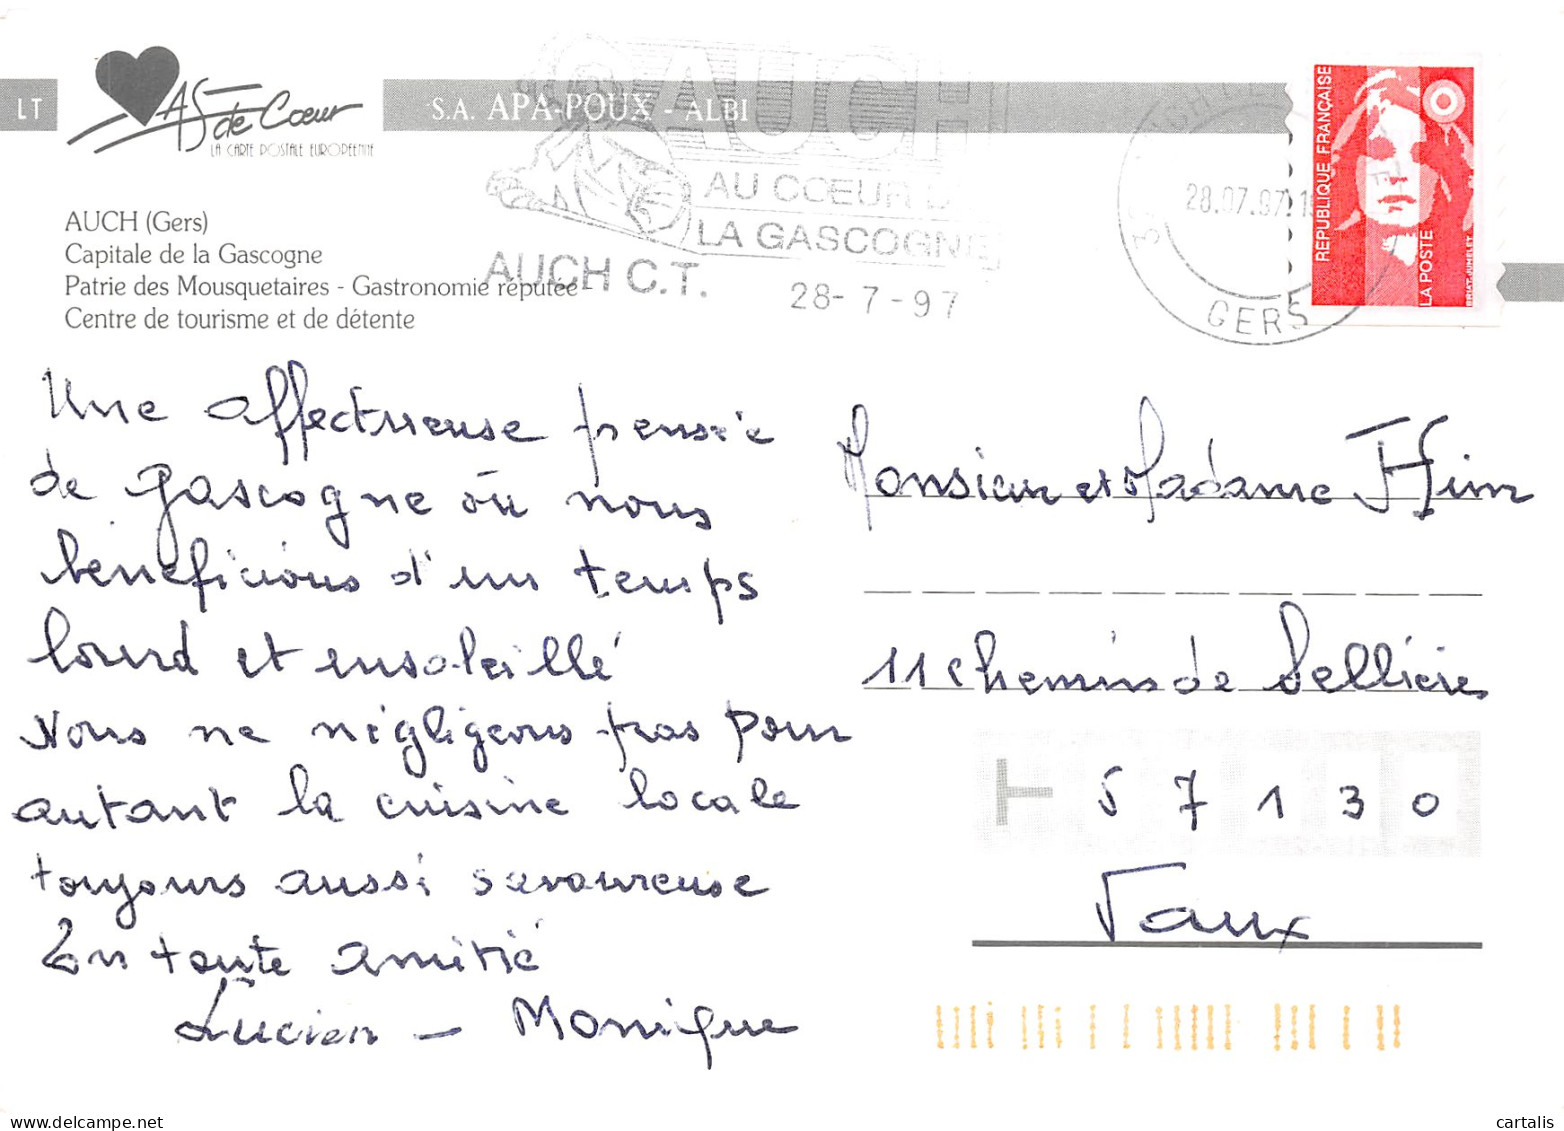 LT
AS de Coeur
LA CARTE POSTALE EUROPEENNE
S.A. APA-POUX - ALBI
AUCH
AU COEUR D
LA GASCOGNE
AUCH C.T.
28-7-97
28.07.97
GERS
REPUBLIQUE FRANÇAISE
LA POSTE
BRIAT-JUMELET
AUCH (Gers)
Capitale de la Gascogne
Patrie des Mousquetaires - Gastronomie réputée
Centre de tourisme et de détente
Une affectueuse pensée
de gascogne où nous
beneficions d'un temps
lourd et ensoleillé
Nous ne négligeons pas pour
autant la cuisine locale
toujours aussi savoureuse
En toute amitié
Lucien - Monique
Monsieur et Madame
11 chemins de Sellières
57130
Vaux
cartalis